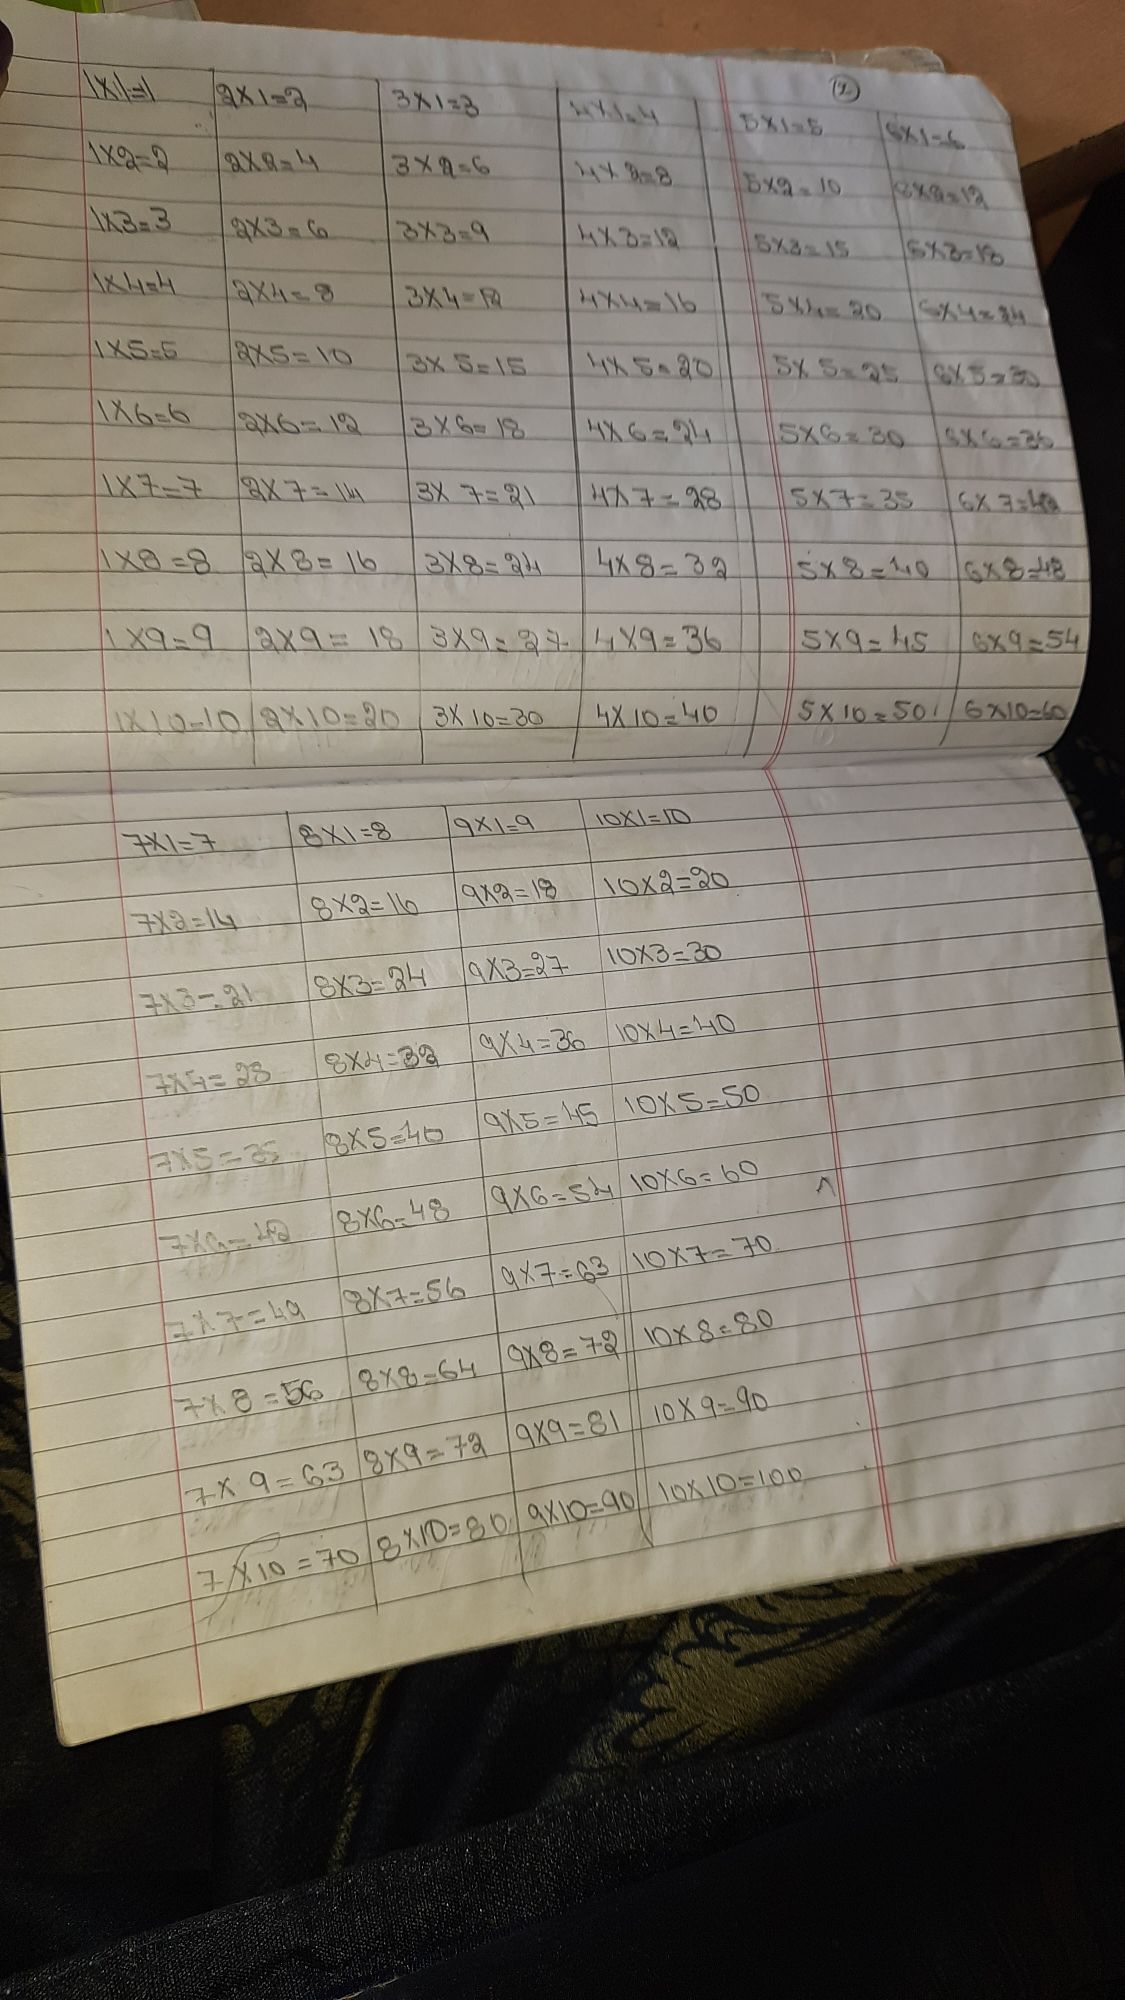 ②
1×1=1 2×1=2 3×1=3 4×1=4 5×1=5 6×1=6
1×2=2 2×2=4 3×2=6 4×2=8 5×2=10 6×2=12
1×3=3 2×3=6 3×3=9 4×3=12 5×3=15 6×3=18
1×4=4 2×4=8 3×4=12 4×4=16 5×4=20 6×4=24
1×5=5 2×5=10 3×5=15 4×5=20 5×5=25 6×5=30
1×6=6 2×6=12 3×6=18 4×6=24 5×6=30 6×6=36
1×7=7 2×7=14 3×7=21 4×7=28 5×7=35 6×7=42
1×8=8 2×8=16 3×8=24 4×8=32 5×8=40 6×8=48
1×9=9 2×9=18 3×9=27 4×9=36 5×9=45 6×9=54
1×10=10 2×10=20 3×10=30 4×10=40 5×10=50 6×10=60
7×1=7 8×1=8 9×1=9 10×1=10
7×2=14 8×2=16 9×2=18 10×2=20
7×3=21 8×3=24 9×3=27 10×3=30
7×4=28 8×4=32 9×4=36 10×4=40
7×5=35 8×5=40 9×5=45 10×5=50
7×6=42 8×6=48 9×6=54 10×6=60
7×7=49 8×7=56 9×7=63 10×7=70
7×8=56 8×8=64 9×8=72 10×8=80
7×9=63 8×9=72 9×9=81 10×9=90
7×10=70 8×10=80 9×10=90 10×10=100